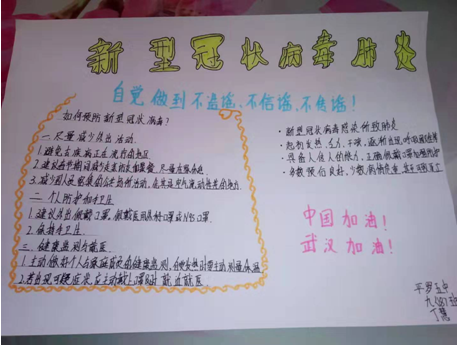 新型冠状病毒肺炎
自觉做到不造谣、不信谣、不传谣!
如何预防新型冠状病毒?
一.尽量减少外出活动.
1.避免去疾病正在流行的地区
2.建议春节期间减少走亲访友和聚餐,尽量在家休息
3.减少到人员密集的公共场所活动,尤其是空气流动性差的地方
二.个人防护和卫生
1.建议外出佩戴口罩,佩戴医用外科口罩或N95口罩.
2.保持手卫生
三.健康监测与就医
1.主动做好个人与家庭成员的健康监测,自觉发热时要主动测量体温
2.若出现可疑症状,应主动戴上口罩及时就近就医.
·新型冠状病毒感染所致肺炎
·起初发热、乏力、干咳,逐渐出现呼吸困难
·具备人传人的能力,正确佩戴口罩
·多数预后良好,少数病情危重
中国加油!
武汉加油!
平罗五中
九(8)班
丁慧